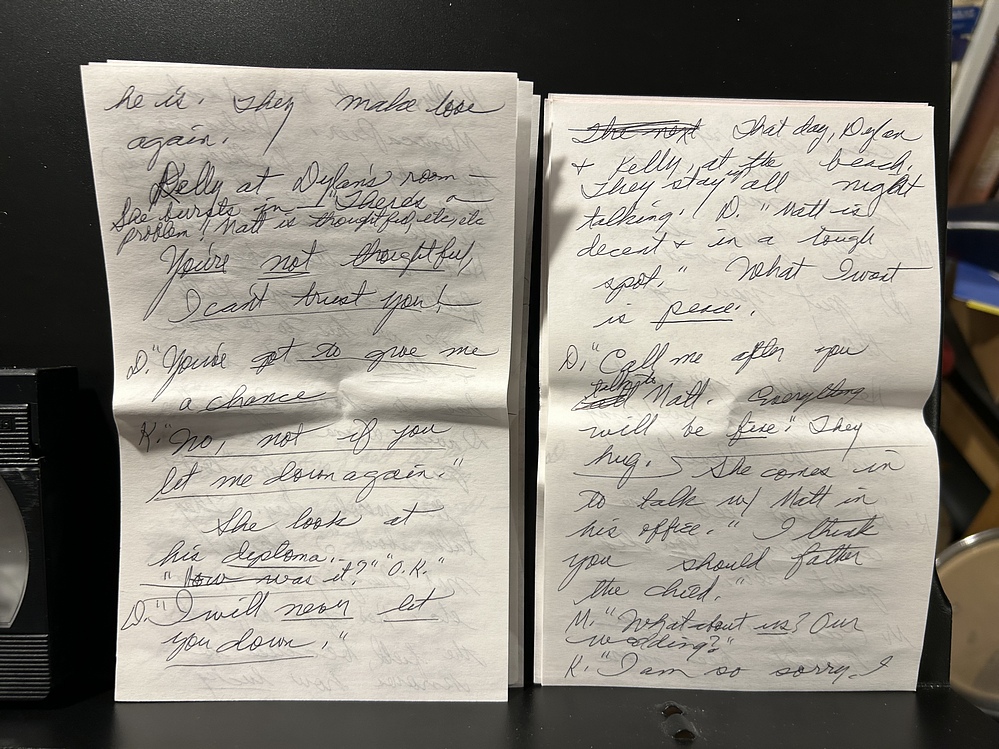 he is. They make love
again.
Kelly at Dylan's room —
She bursts in — "There's a
problem". Matt is thoughtful, etc, etc
You're not thoughtful,
I can't trust you!
D. "You've got to give me
a chance
K. "No, not if you
let me down again."
She look at
his diploma. —
"How was it?" "O.K."
D. "I will never let
you down."
The next That day, Dylan
& Kelly, at the beach,
They stay up all night
talking. D. "Matt is
decent & in a tough
spot." What I want
is peace.
D. "Call me after you
talk to Matt. Everything
will be fine." They
hug. She comes in
to talk w/ Matt in
his office. " I think
you should father
the child."
M. "What about us? Our
wedding?"
K. "I am so sorry. I